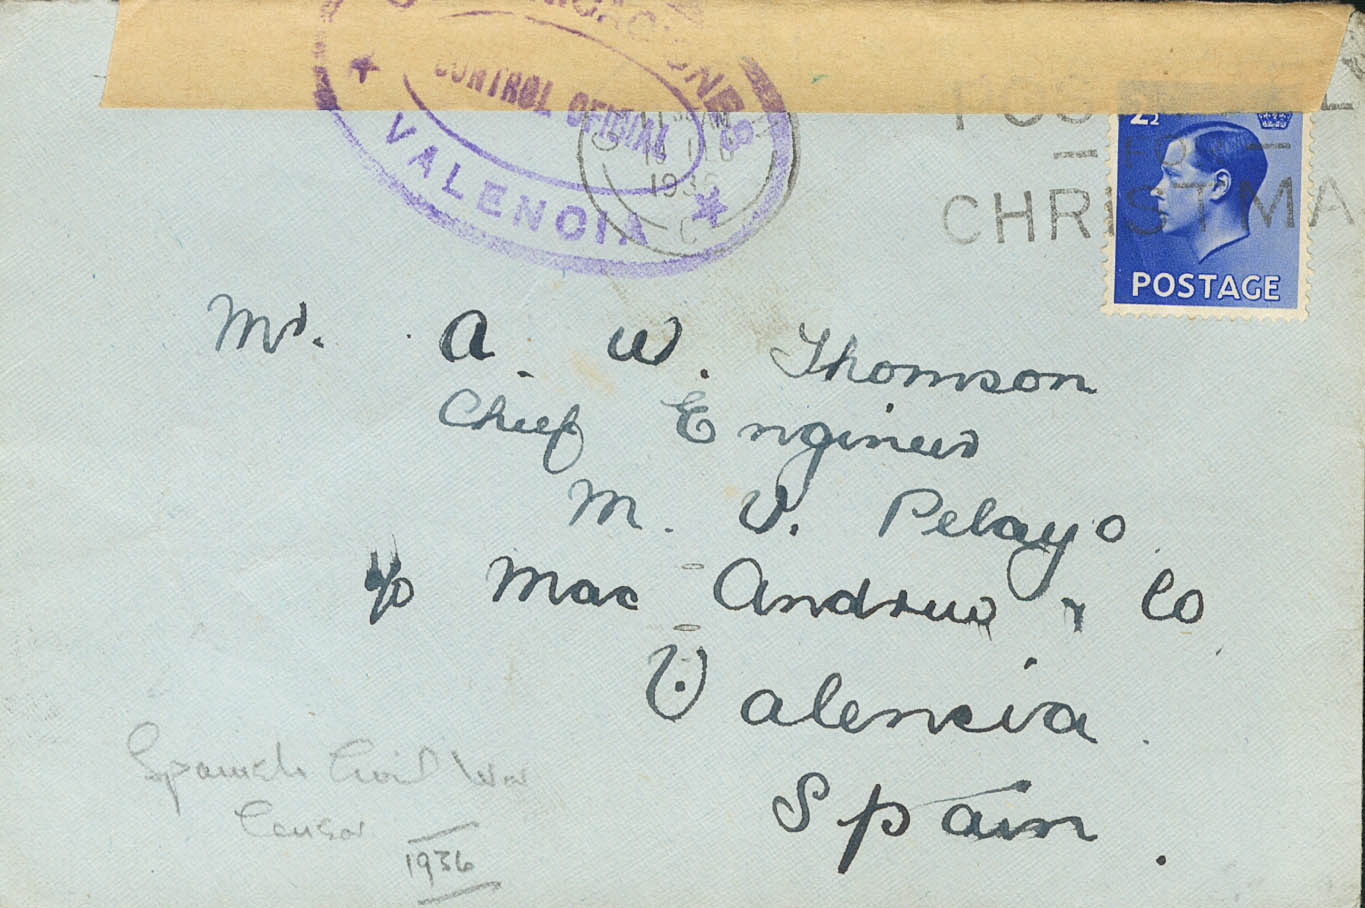 CONTROL OFICIAL
VALENCIA
1936
C
POS
FOR
CHRISTMA
2½
POSTAGE
Mr. A. W. Thomson
Chief Engineer
M. V. Pelayo
c/o Mac Andrew & Co
Valencia
Spain.
Spanish Civil War
Censor
1936